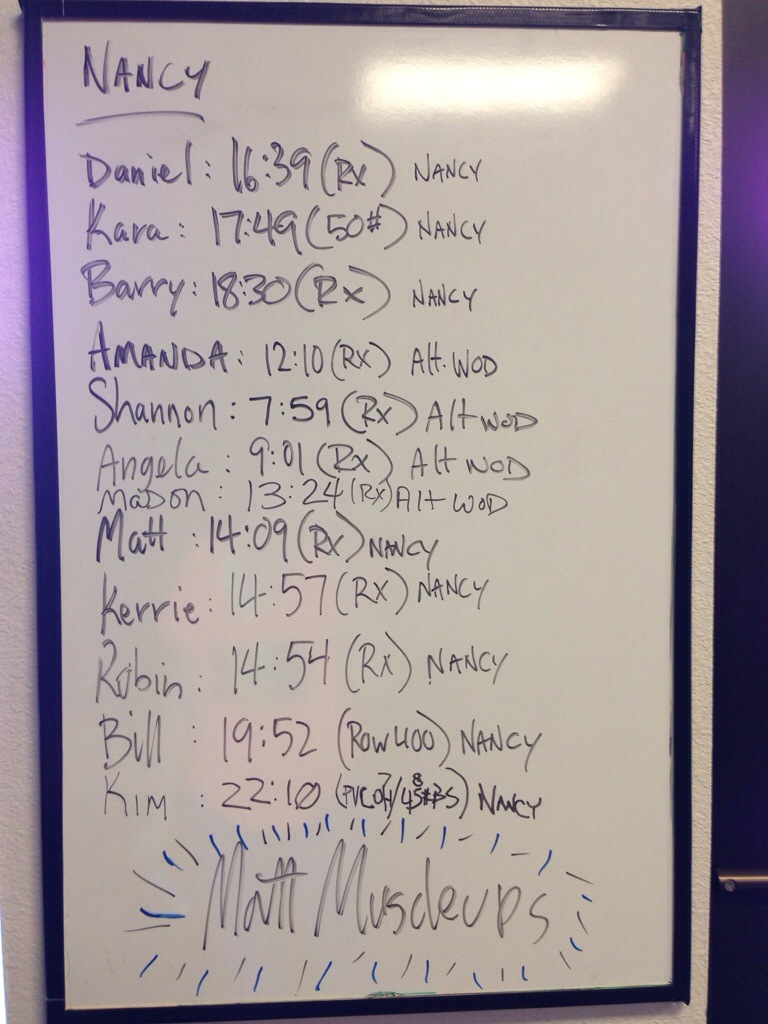 NANCY
Daniel: 16:39 (Rx) NANCY
Kara: 17:49 (50#) NANCY
Barry: 18:30 (Rx) NANCY
AMANDA: 12:10 (RX) Alt. WOD
Shannon: 7:59 (Rx) Alt WOD
Angela: 9:01 (Rx) Alt WOD
MADON: 13:24 (RX) Alt WOD
Matt: 14:09 (Rx) NANCY
Kerrie: 14:57 (RX) NANCY
Robin: 14:54 (Rx) NANCY
Bill: 19:52 (Row 400) NANCY
KIM: 22:10 NANCY
Matt Muscleups